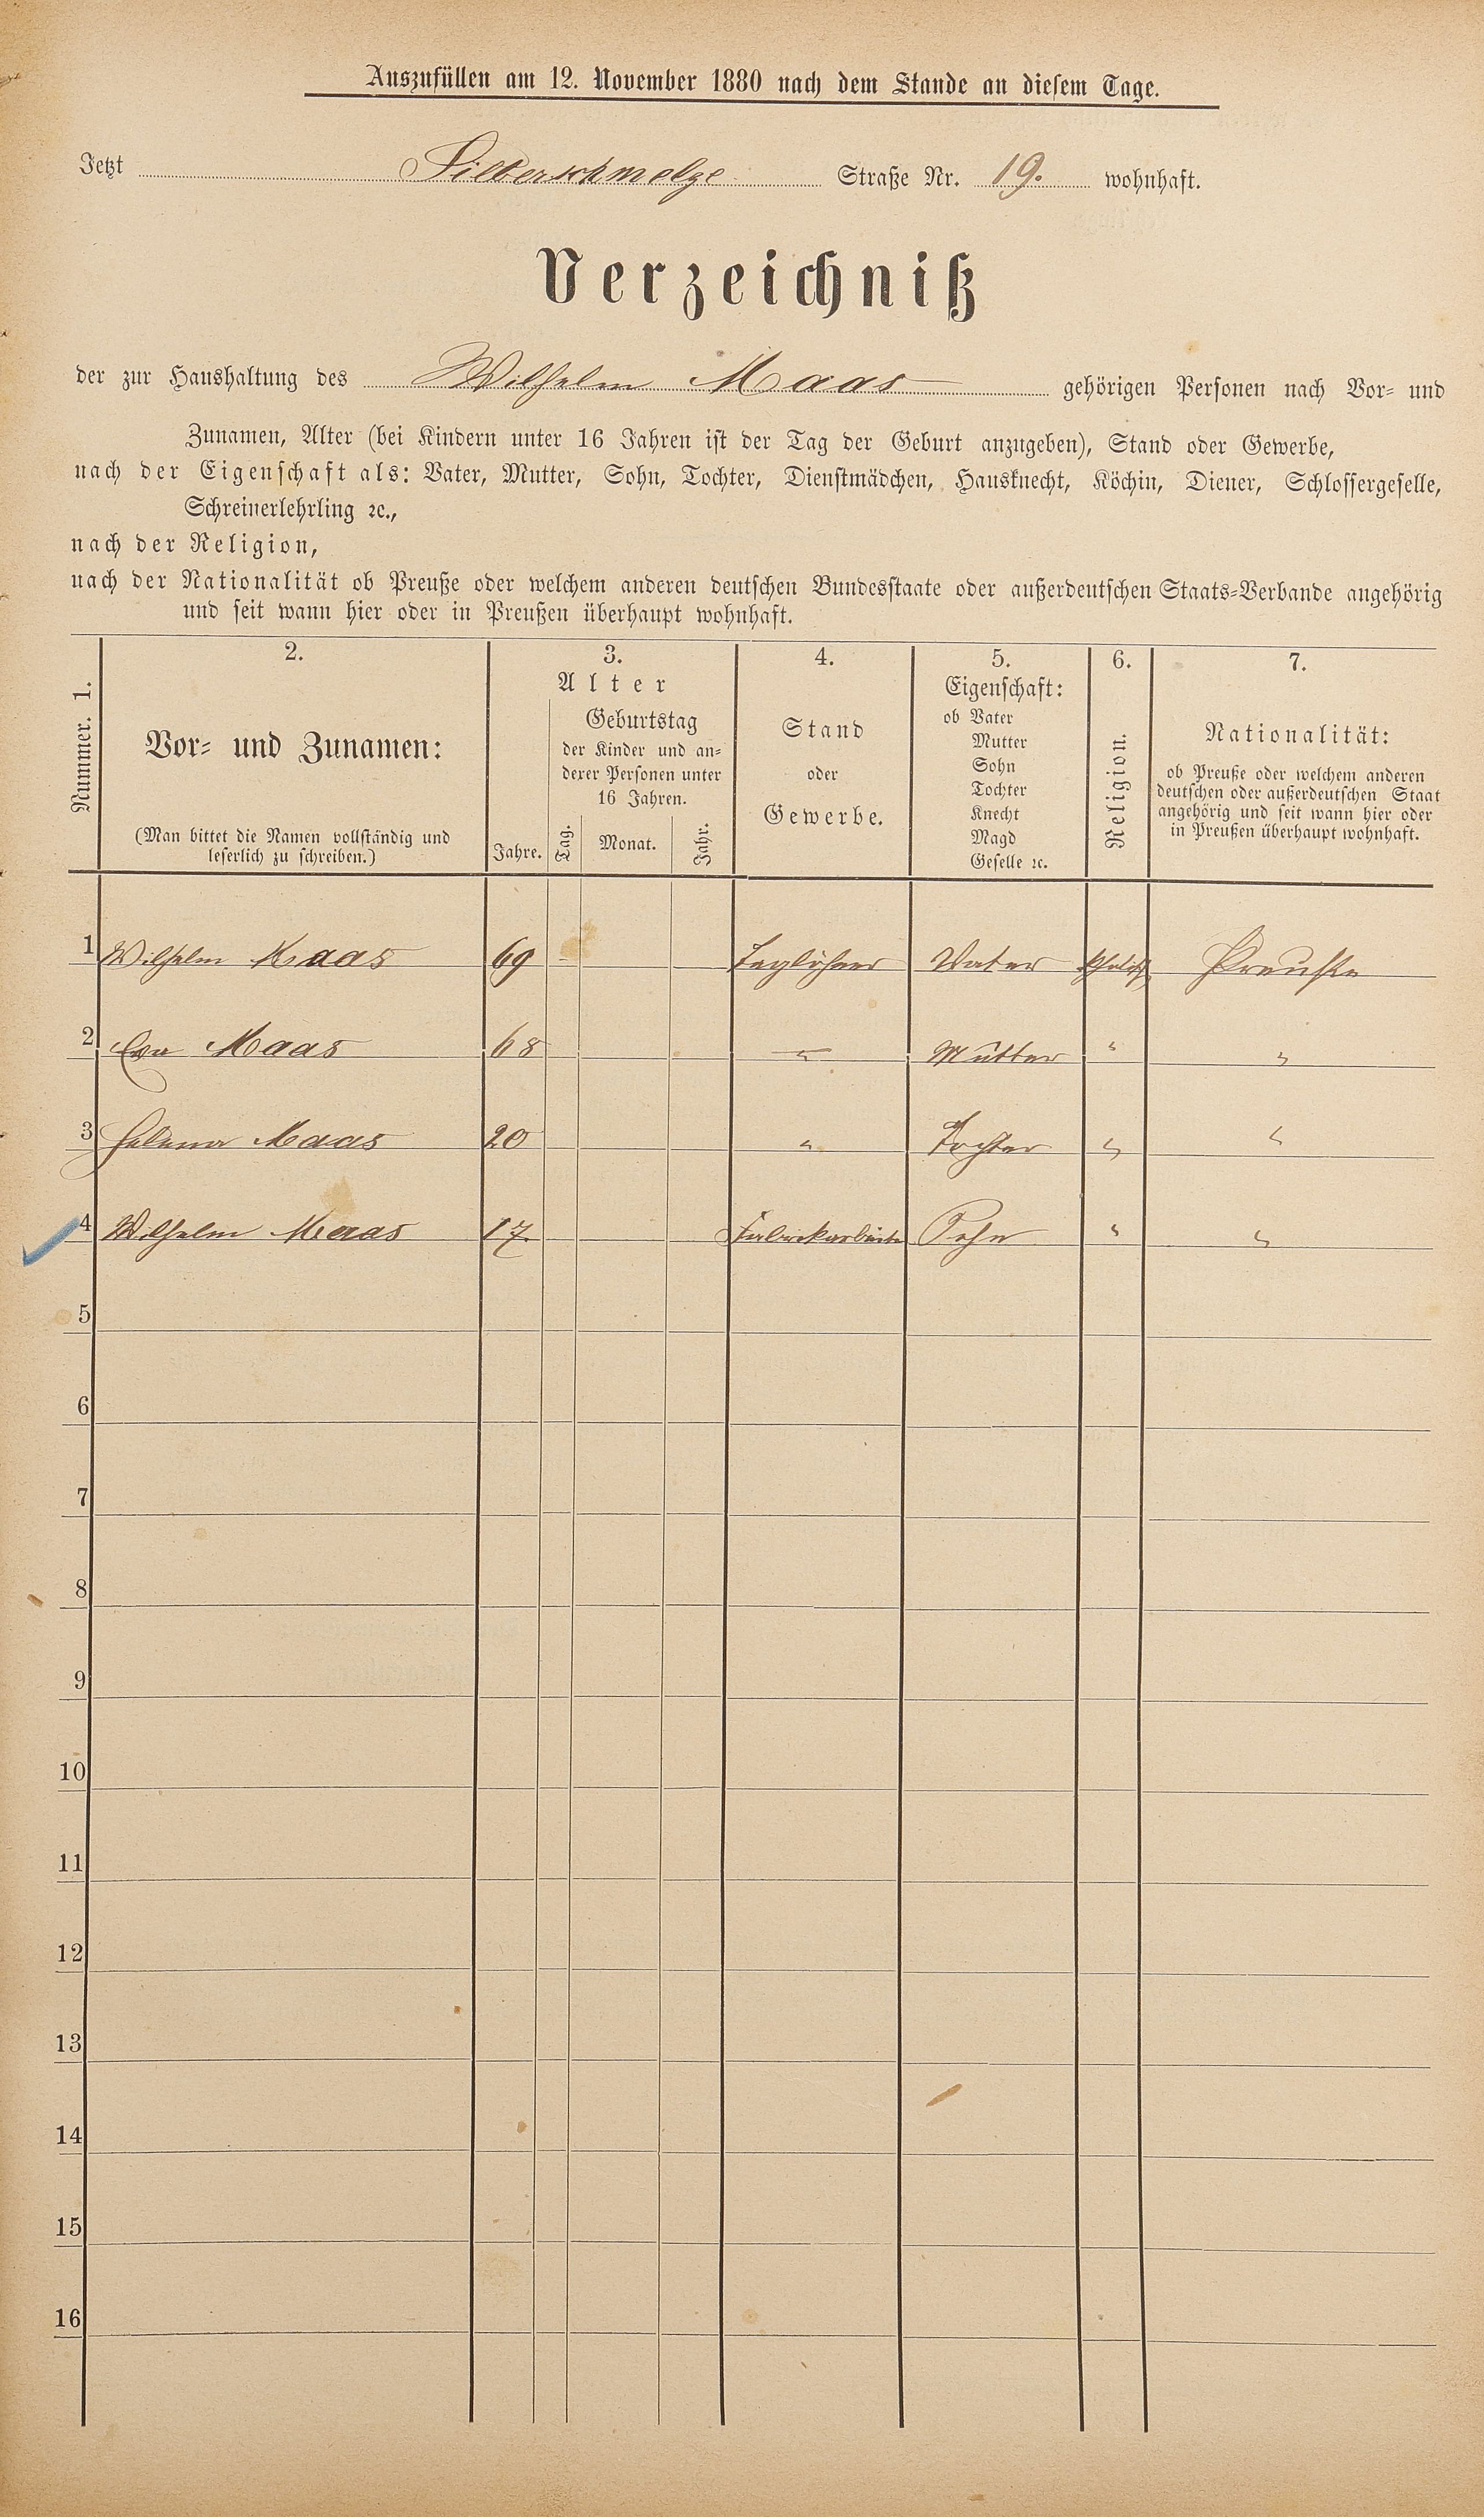 Auszufüllen am 12. November 1880 nach dem Stande an diesem Tage.
Jetzt Silberschmelze Straße Nr. 19. wohnhaft.
Verzeichniß
der zur Haushaltung des Wilhelm Maas gehörigen Personen nach Vor- und
Zunamen, Alter (bei Kindern unter 16 Jahren ist der Tag der Geburt anzugeben), Stand oder Gewerbe,
nach der Eigenschaft als: Vater, Mutter, Sohn, Tochter, Dienstmädchen, Hausknecht, Köchin, Diener, Schlossergeselle,
Schreinerlehrling ꝛc.,
nach der Religion,
nach der Nationalität ob Preuße oder welchem anderen deutschen Bundesstaate oder außerdeutschen Staats-Verbande angehörig
und seit wann hier oder in Preußen überhaupt wohnhaft.
Nummer. 1.
2.
Vor- und Zunamen:
(Man bittet die Namen vollständig und
leserlich zu schreiben.)
3.
Alter
Jahre.
Geburtstag
der Kinder und an-
derer Personen unter
16 Jahren.
Tag. Monat. Jahr.
4.
Stand
oder
Gewerbe.
5.
Eigenschaft:
ob Vater
Mutter
Sohn
Tochter
Knecht
Magd
Geselle ꝛc.
6.
Religion.
7.
Nationalität:
ob Preuße oder welchem anderen
deutschen oder außerdeutschen Staat
angehörig und seit wann hier oder
in Preußen überhaupt wohnhaft.
1 Wilhelm Maas 69 Taglöhner Vater Preuße
2 Eva Maas 68 " Mutter " "
3 Helena Maas 20 " Tochter " "
4 Wilhelm Maas 17 Fabrickarbeiter Sohn " "
5
6
7
8
9
10
11
12
13
14
15
16